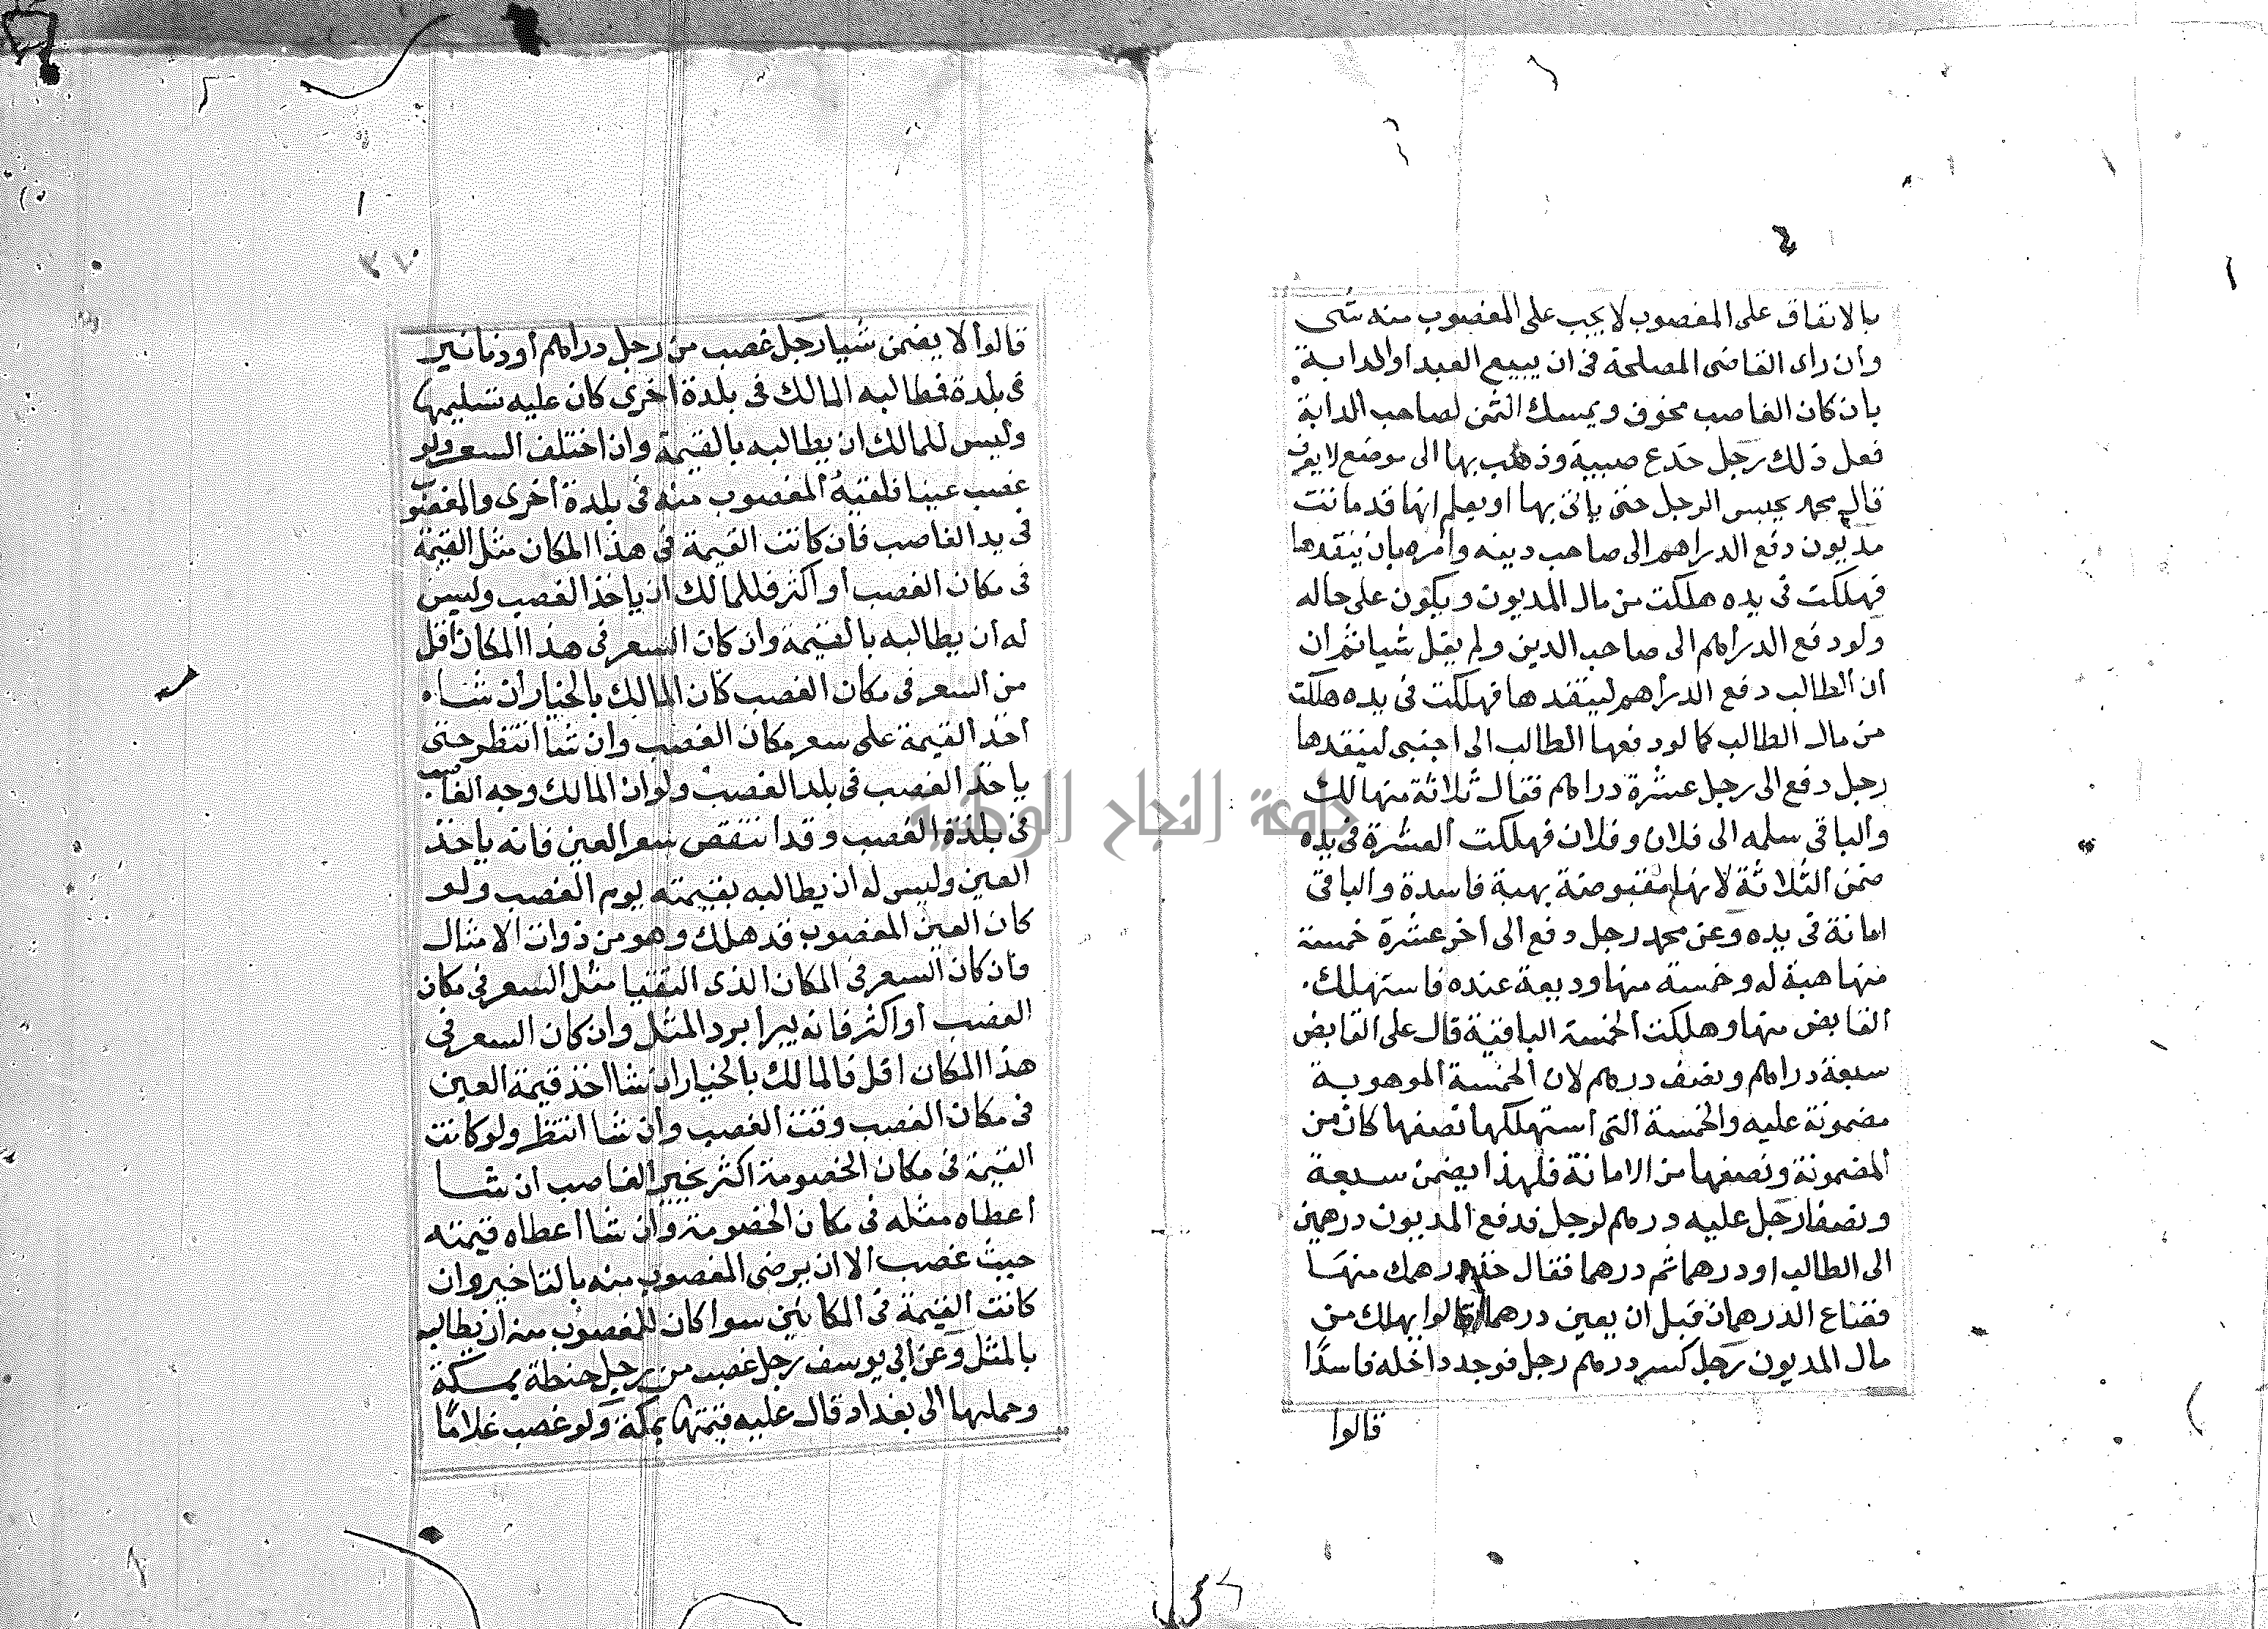 بالاتفاق على المغصوب لا يجب على المغصوب منه شى
وان راى القاضى المصلحة فى ان يبيع العبد أو الدابة
بان كان الغاصب مخوف ويمسك الثمن لصاحب الدابة
فعل ذلك رجل خدع صبية وذهب بها الى موضع لا يعرف
قال محمد يحبس الرجل حتى ياتى بها او يعلم انها قد ماتت
مديون دفع الدراهم الى صاحب دينه وأمره بان ينقدها
فهلكت فى يده هلكت من مال المديون ويكون على حاله
ولو دفع الدراهم الى صاحب الدين ولم يقل شيا ثم ان
ان الطالب دفع الدراهم لينقدها فهلكت فى يده هلكت
من مال الطالب كما لو دفعها الطالب الى اجنبى لينقدها
رجل دفع الى رجل عشرة دراهم فقال ثلاثة منها لك
والباقى سلمه الى فلان وفلان فهلكت العشرة فى يده
ضمن الثلاثة لانها مقبوضة بهبة فاسدة والباقى
امانة فى يده وعن محمد رجل دفع الى أخر عشرة خمسة
منها هبة له وخمسة منها وديعة عنده فاستهلك
القابض منها وهلكت الخمسة الباقية قال على القابض
سبعة دراهم ونصف درهم لان الخمسة الموهوبة
مضمونة عليه والخمسة التى استهلكها نصفها كان من
المضمونة ونصفها من الامانة فلهذا يضمن سبعة
ونصفا رجل عليه درهم لرجل فدفع المديون درهمين
الى الطالب او درهما ثم درهما فقال خذ درهمك منها
فضاع الدرهمان قبل ان يعين درهما قالوا يهلك من
مال المديون رجل كسر درهم رجل فوجد داخله فاسدًا
قالوا
قالوا لا يضمن شيا رجل غصب من رجل دراهم أو دنانير
فى بلدة فطالبه المالك فى بلدة اخرى كان عليه تسليمها
وليس للمالك ان يطالبه بالقيمة وان اختلف السعر ولو
غصب عينا فلقيه المغصوب منه فى بلدة أخرى والمغصوب
فى يد الغاصب فان كانت القيمة فى هذا المكان مثل القيمة
فى مكان الغصب أو أكثر فللمالك ان ياخذ الغصب وليس
له ان يطالبه بالقيمة وان كان السعر فى هذا المكان أقل
من السعر فى مكان الغصب كان المالك بالخيار ان شاء
أخذ القيمة على سعر مكان الغصب وان شا انتظر حتى
ياخذ الغصب فى بلد الغصب ولو ان المالك وجد الغاصب
فى بلدة الغصب وقد انتقص سعر العين فانه ياخذ
العين وليس له ان يطالبه بقيمته يوم الغصب ولو
كان العين المغصوب قد هلك وهو من ذوات الامثال
فان كان السعر فى المكان الذى التقيا مثل السعر فى مكان
الغصب أو اكثر فانه يبرا برد المثل وان كان السعر فى
هذا المكان اقل فالمالك بالخيار ان شا اخذ قيمة العين
فى مكان الغصب وقت الغصب وان شا انتظر ولو كانت
القيمة فى مكان الخصومة اكثر يخير الغاصب ان شا
أعطاه مثله فى مكان الخصومة وان شا اعطاه قيمته
حيث غصب الا ان يرضى المغصوب منه بالتاخير وان
كانت القيمة فى المكانين سوا كان للمغصوب منه ان يطالبه
بالمثل وعن ابى يوسف رجل غصب من رجل حنطة بمكة
وحملها الى بغداد قال عليه قيمتها بمكة ولو غصب غلامًا
جامعة النجاح الوطنية